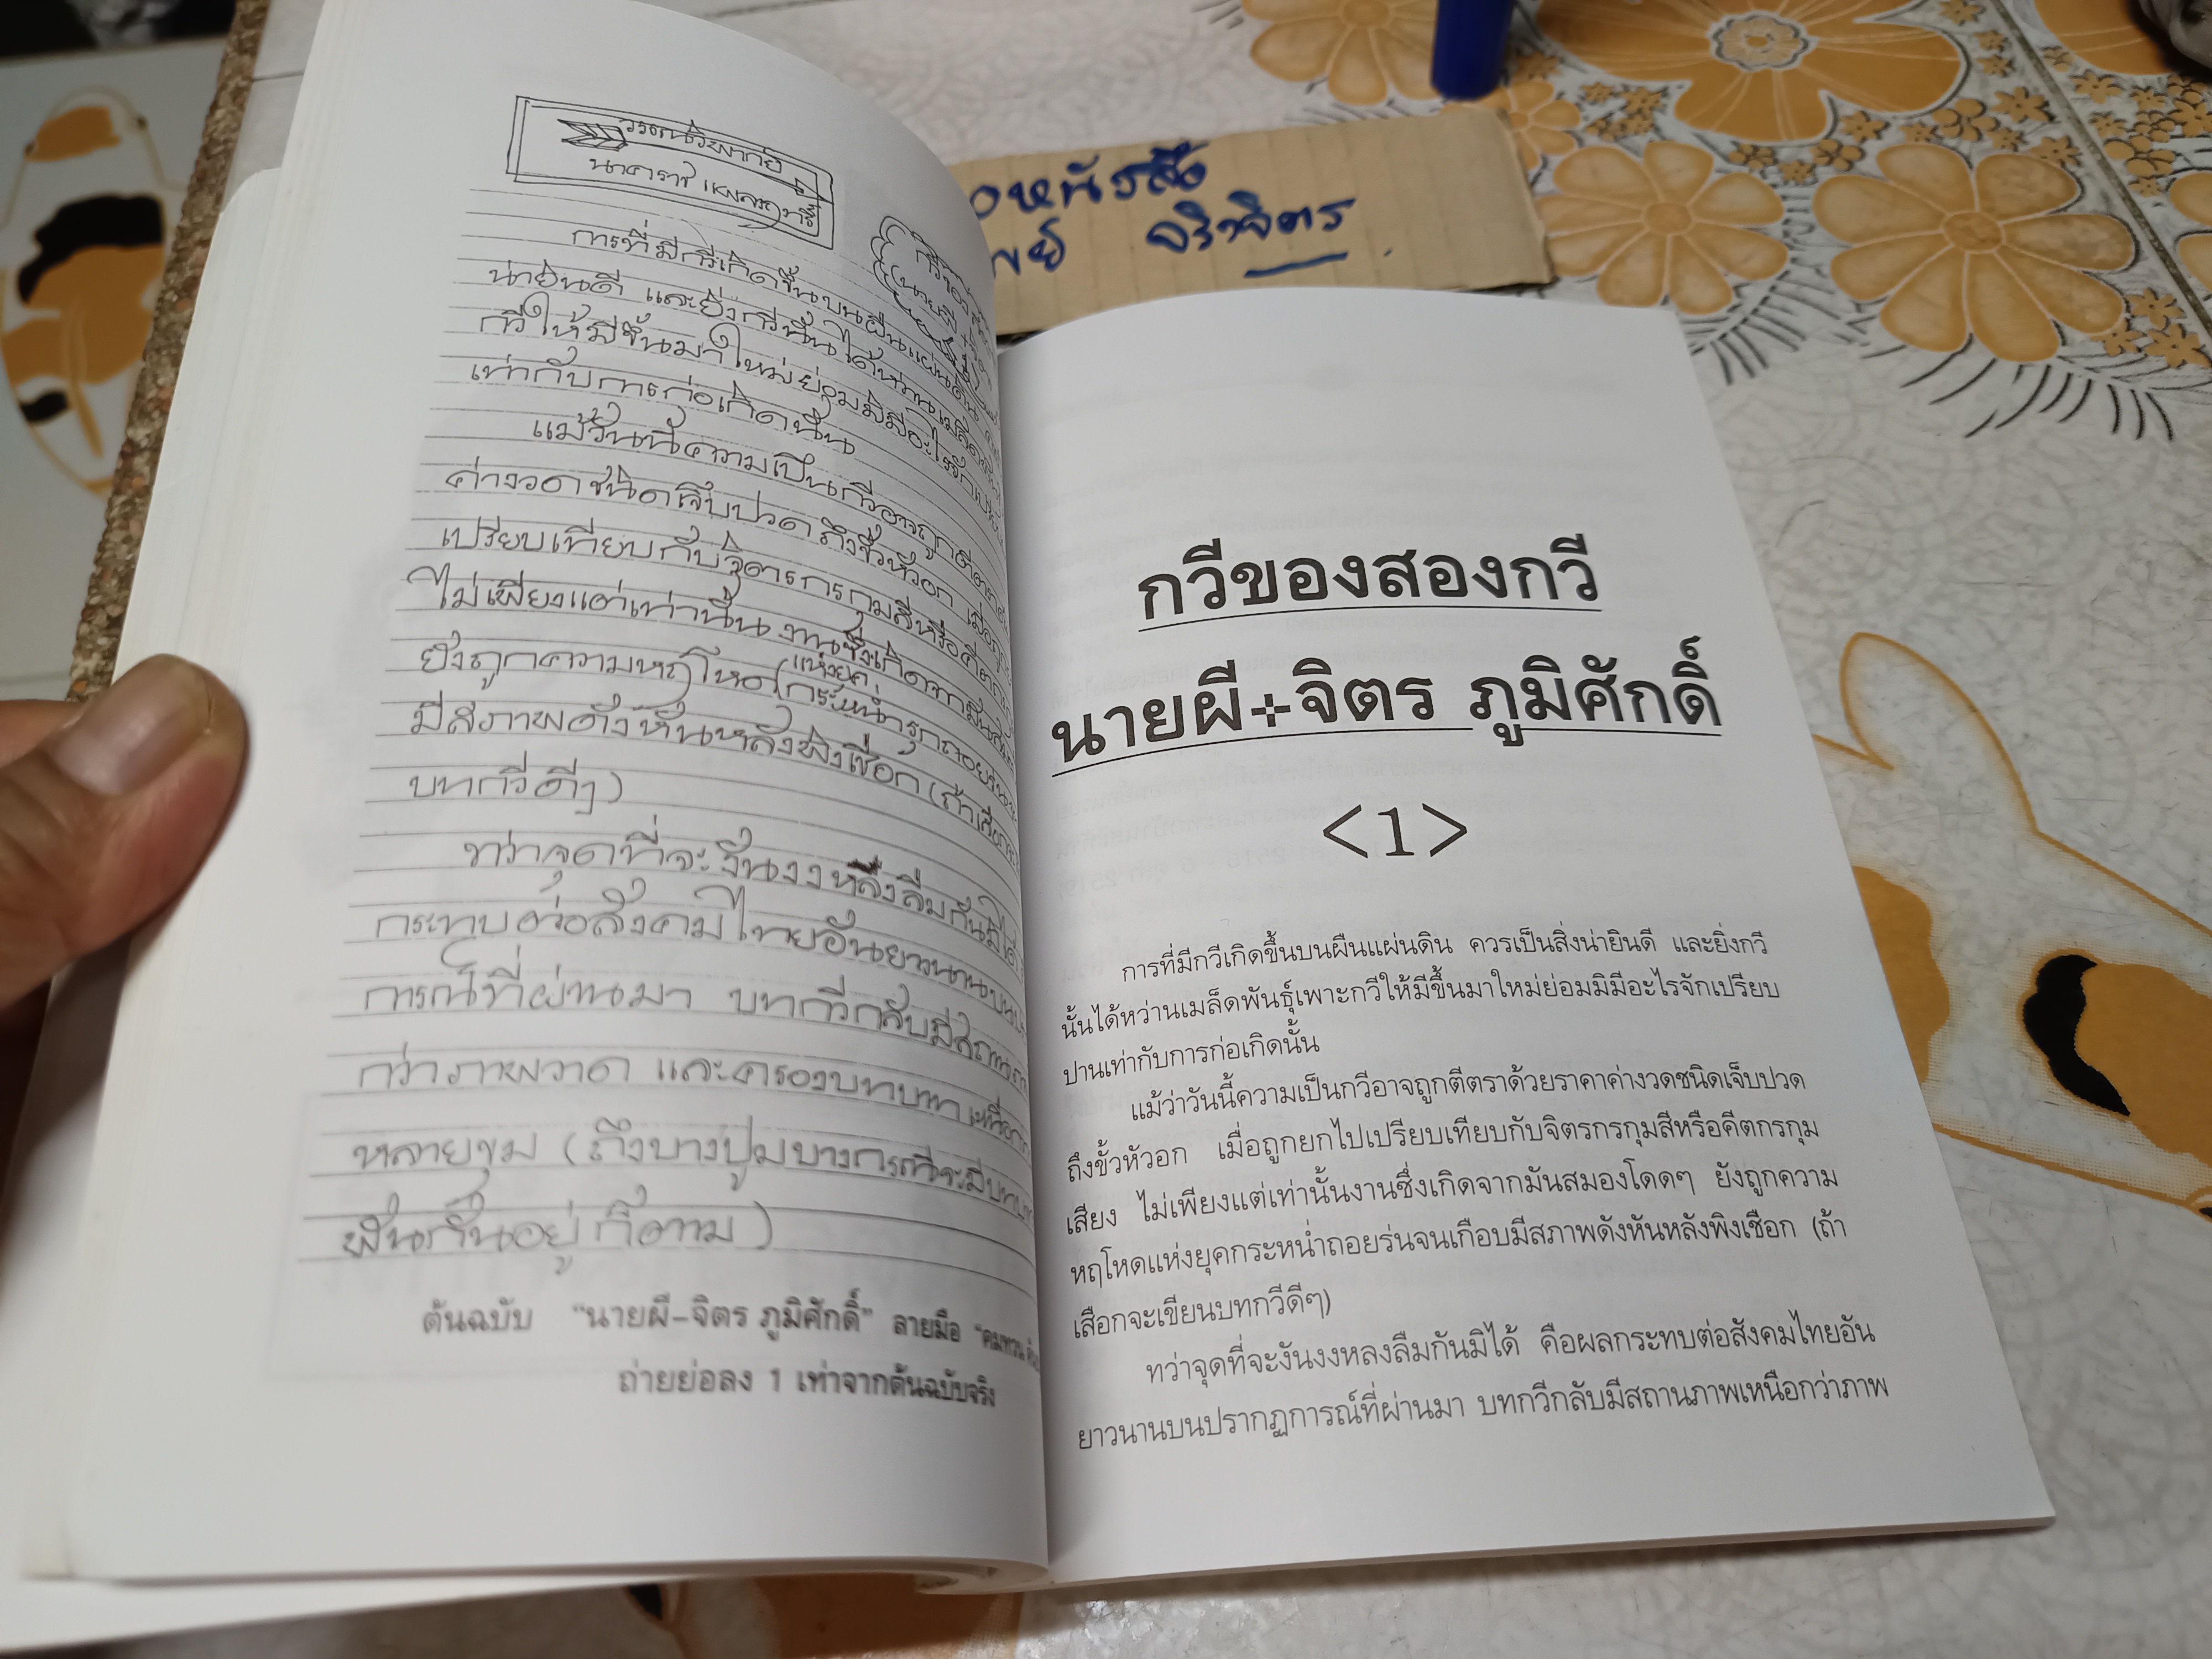 วรรณวิพากย์
นาคราช แผลงฤทธิ์
การที่มีกวีเกิดขึ้นบนผืนแผ่นดิน
น่ายินดี และยิ่งกวีนั้นได้หว่านเมล็ดพันธุ์
กวีให้มีขึ้นมาใหม่ย่อมมิมีอะไรจักเปรียบ
เท่ากับการก่อเกิดนั้น
แม้วันนี้ความเป็นกวีอาจถูกตีตรา
ค่างวดชนิดเจ็บปวดถึงขั้วหัวอก เมื่อถูก
เปรียบเทียบกับจิตรกรกุมสีหรือคีตกร
ไม่เพียงแต่เท่านั้น งานซึ่งเกิดจากมันสมอง
แห่งยุค
ยังถูกความหฤโหดกระหน่ำรุกถอยร่น
มีสภาพดังหันหลังพิงเชือก (ถ้าเสือกจะ
บทกวีดีๆ)
ทว่าจุดที่จะงันงงหลงลืมกันมิได้
กระทบต่อสังคมไทยอันยาวนานบน
การณ์ที่ผ่านมา บทกวีกลับมีสถาน
กว่าภาพวาด และครองบทบาทเหนือกว่า
หลายขุม (ถึงบางปูมบางกรณีจะมีบทบาท
พันกันอยู่ก็ตาม)
ต้นฉบับ "นายผี-จิตร ภูมิศักดิ์" ลายมือ "คมทวน
ถ่ายย่อลง 1 เท่าจากต้นฉบับจริง
หนังสือ
จริงจิตร
กวีของสองกวี
นายผี+จิตร ภูมิศักดิ์
<1>
การที่มีกวีเกิดขึ้นบนผืนแผ่นดิน ควรเป็นสิ่งน่ายินดี และยิ่งกวี
นั้นได้หว่านเมล็ดพันธุ์เพาะกวีให้มีขึ้นมาใหม่ย่อมมิมีอะไรจักเปรียบ
ปานเท่ากับการก่อเกิดนั้น
แม้ว่าวันนี้ความเป็นกวีอาจถูกตีตราด้วยราคาค่างวดชนิดเจ็บปวด
ถึงขั้วหัวอก เมื่อถูกยกไปเปรียบเทียบกับจิตรกรกุมสีหรือคีตกรกุม
เสียง ไม่เพียงแต่เท่านั้นงานซึ่งเกิดจากมันสมองโดดๆ ยังถูกความ
หฤโหดแห่งยุคกระหน่ำถอยร่นจนเกือบมีสภาพดังหันหลังพิงเชือก (ถ้า
เสือกจะเขียนบทกวีดีๆ)
ทว่าจุดที่จะงันงงหลงลืมกันมิได้ คือผลกระทบต่อสังคมไทยอัน
ยาวนานบนปรากฏการณ์ที่ผ่านมา บทกวีกลับมีสถานภาพเหนือกว่าภาพ